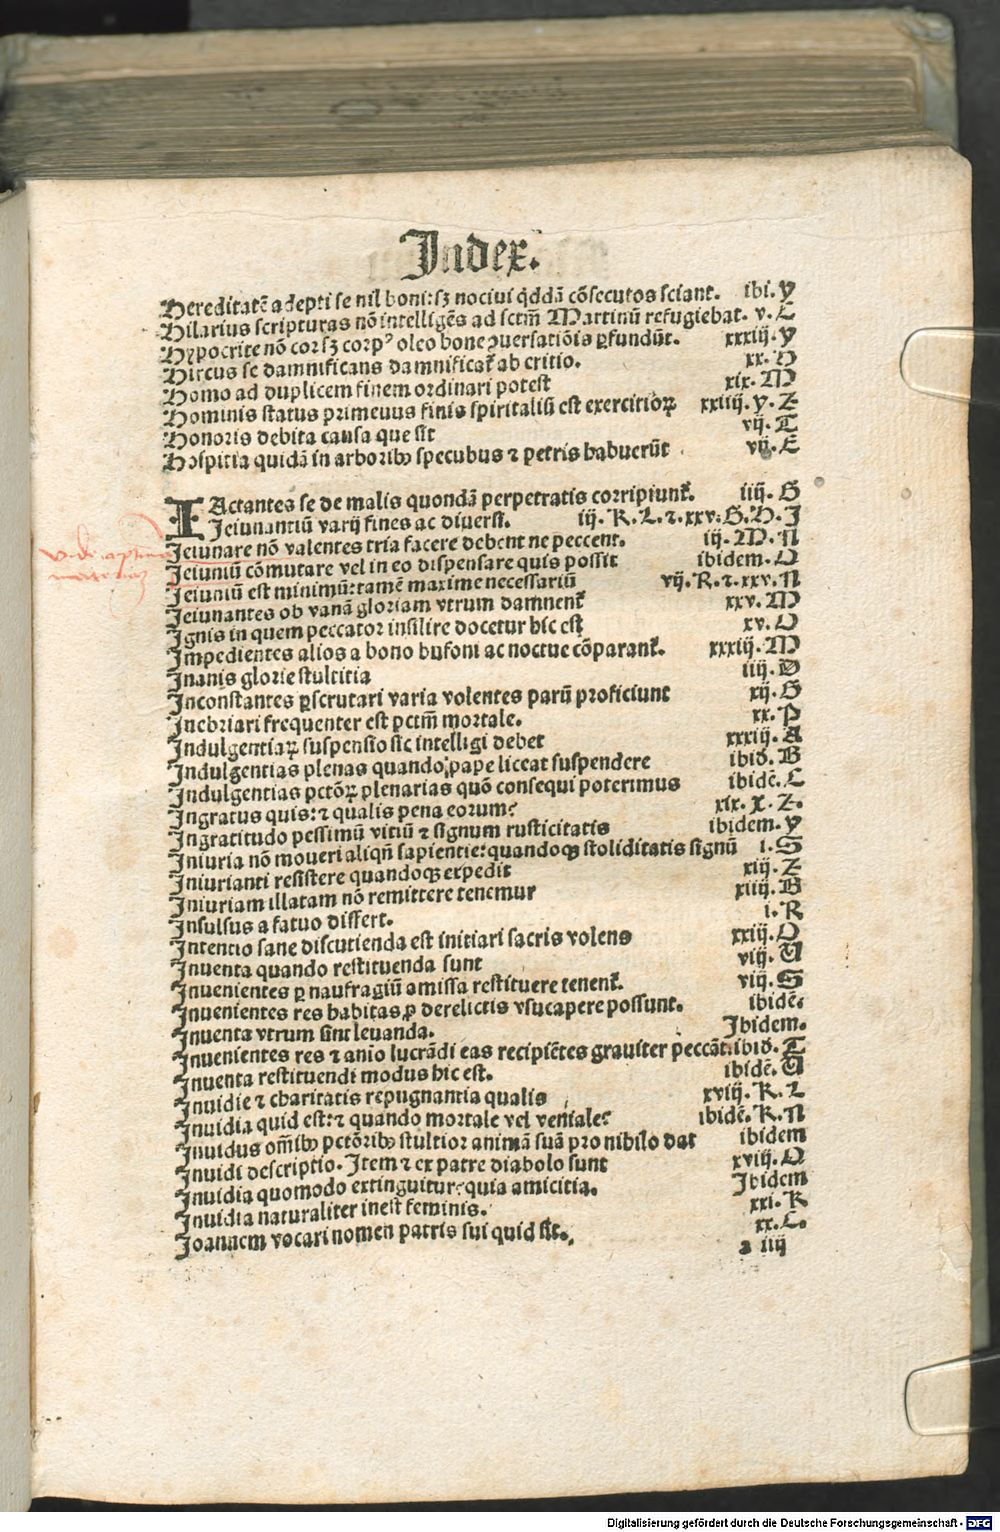 Index.
Hereditatē adepti se nil boni: sꝫ nociui qͥddā cōsecutos sciant. ibi. Y
Hilarius scripturas nō intelligēs ad sctm̄ Martinū refugiebat. v. L
Hypocrite nō cor sꝫ corpꝰ oleo bone ꝯuersatiōis ꝑfundūt. xxxiij. Y
Hircus se damnificans damnificat᷑ ab critio. xx. H
Homo ad duplicem finem ordinari potest xix. M
Hominis status primeuus finis spiritaliū est exercitioꝝ xxiiij. Y. Z
Honoris debita causa que sit vij. T
Hospitia quidā in arboribꝰ specubus ⁊ petris habuerūt vij. E
IActantes se de malis quondā perpetratis corripiunt᷑. iiij. G
Ieiunantiū varij fines ac diuersi. iij. K. L. ⁊. xxv. G. H. I
Ieiunare nō valentes tria facere debent ne peccent. iij. M. N
Ieiuniū cōmutare vel in eo dispensare quis possit ibidem. O
Ieiuniū est minimū: tamē maxime necessariū vij. K. ⁊. xxv. N
Ieiunantes ob vanā gloriam vtrum damnent᷑ xxv. M
Ignis in quem peccator insilire docetur hic est xv. O
Impedientes alios a bono bufoni ac noctue cōparant᷑. xxxiij. M
Inanis glorie stultitia iiij. D
Inconstantes ꝑscrutari varia volentes parū proficiunt xij. G
Inebriari frequenter est pctm̄ mortale. xx. P
Indulgentiaꝝ suspensio sic intelligi debet xxxiij. A
Indulgentias plenas quando pape liceat suspendere ibid. B
Indulgentias pctōꝝ plenarias quō consequi poterimus ibidē. C
Ingratus quis: ⁊ qualis pena eorum? xix. X. Z.
Ingratitudo pessimū vitiū ⁊ signum rusticitatis ibidem. Y
Iniuria nō moueri aliqn̄ sapientie: quandoqꝫ stoliditatis signū i. S
Iniurianti resistere quandoqꝫ expedit xij. Z
Iniuriam illatam nō remittere tenemur xiiij. B
Insulsus a fatuo differt. i. R
Intentio sane discutienda est initiari sacris volens xxiij. O
Inuenta quando restituenda sunt viij. U
Inuenientes ꝑ naufragiū amissa restituere tenent᷑. viij. S
Inuenientes res habitas ꝓ derelictis vsucapere possunt. ibidē.
Inuenta vtrum sint leuanda. Ibidem.
Inuenientes res ⁊ aīo lucrādi eas recipiētes grauiter peccāt. ibid. T
Inuenta restituendi modus hic est. ibidē. U
Inuidie ⁊ charitatis repugnantia qualis xviij. K. L
Inuidia quid est: ⁊ quando mortale vel veniale? ibidē. K. N
Inuidus om̄ibꝰ pctōribꝰ stultior animā suā pro nihilo dat ibidem
Inuidi descriptio. Item ⁊ ex patre diabolo sunt xviij. O
Inuidia quomodo extinguitur: quia amicitia. Ibidem
Inuidia naturaliter inest feminis. xxi. K
Ioannem vocari nomen patris sui quid sit. xx. C.
a iiij
Digitalisierung gefördert durch die Deutsche Forschungsgemeinschaft - DFG